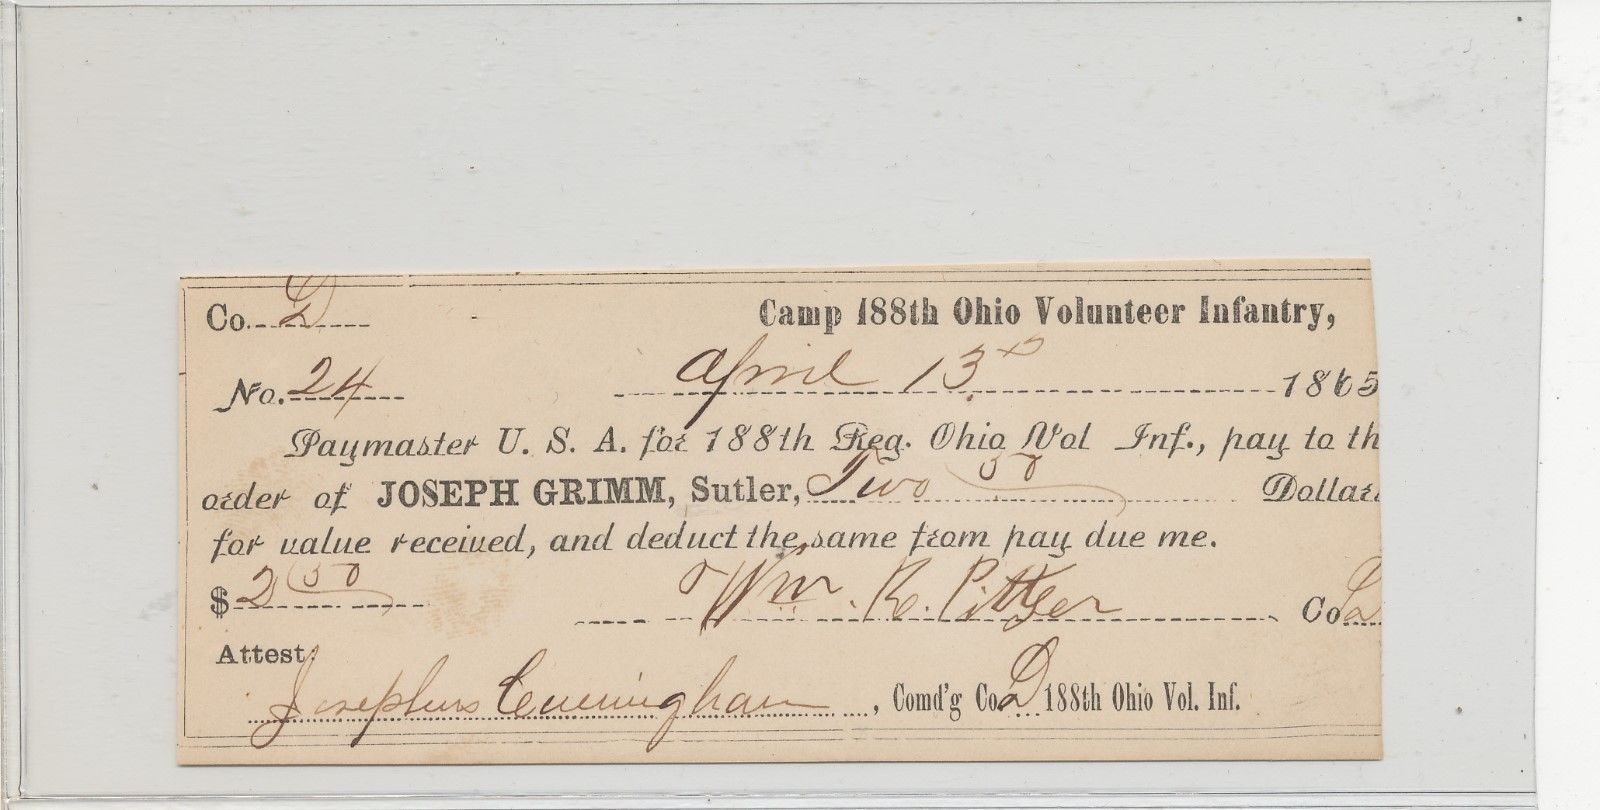 Co. D
Camp 188th Ohio Volunteer Infantry,
No. 24
April 13th 1865
Paymaster U. S. A. for 188th Reg. Ohio Vol Inf., pay to th
order of JOSEPH GRIMM, Sutler, Two 50 Dollar
for value received, and deduct the same from pay due me.
$ 2 50
Wm. R. Pittser Co. D
Attest:
Josephus Cunningham, Comd'g Co. D 188th Ohio Vol. Inf.